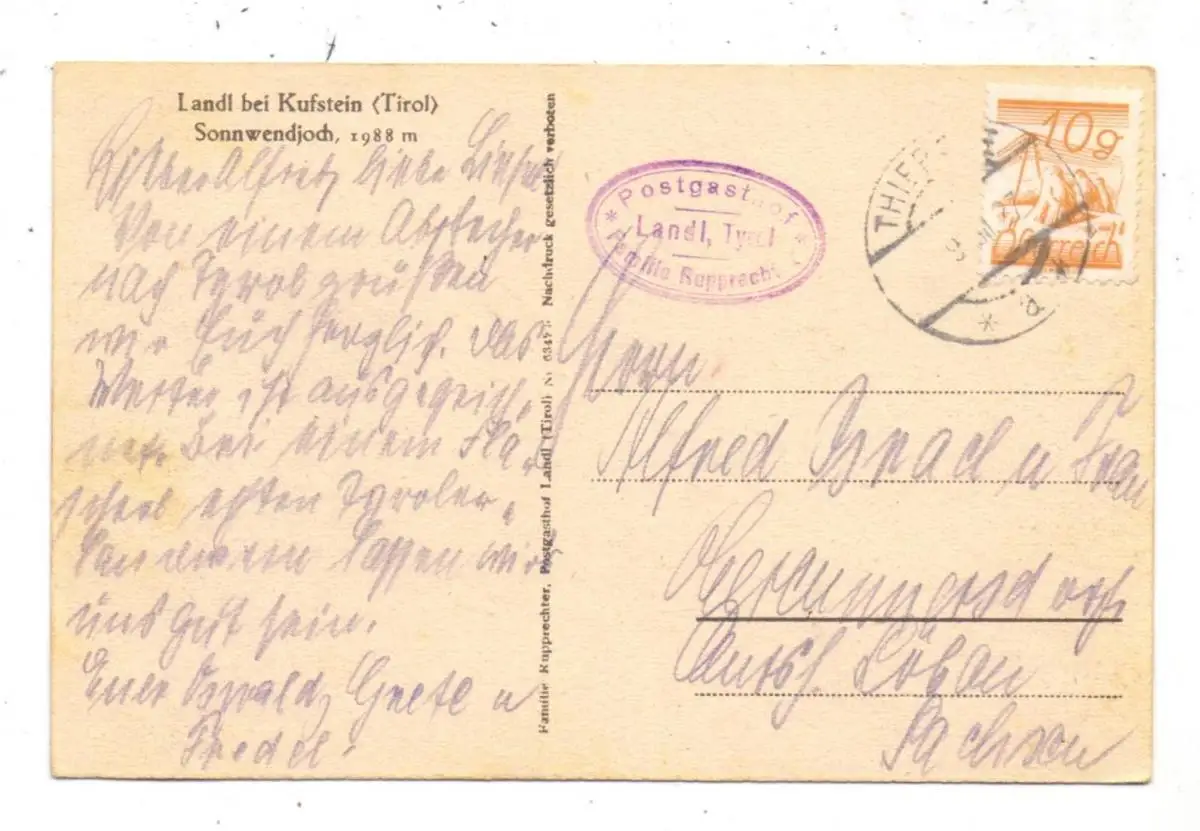 Landl bei Kufstein (Tirol)
Sonnwendjoch, 1988 m
Alfred, liebe
Von einem Abstecher
nach Tyrol grüßen
wir Euch herzlich. Das
Wetter ist ausgezeich-
net. Bei einem Fläs-
chens echten Tyroler-
lassen wir
uns gut sein.
Euer Oswald, Grete u
Friedel.
Familie Rupprechter, Postgasthof Landl (Tirol) Nr. 6347. Nachdruck gesetzlich verboten
* Postgasthof *
Landl, Tyrol
Familie Rupprecht
THIER
* d
10g
Österreich
Herrn
Alfred u Frau
Obercunnersdorf
Amtsh. Löbau
Sachsen